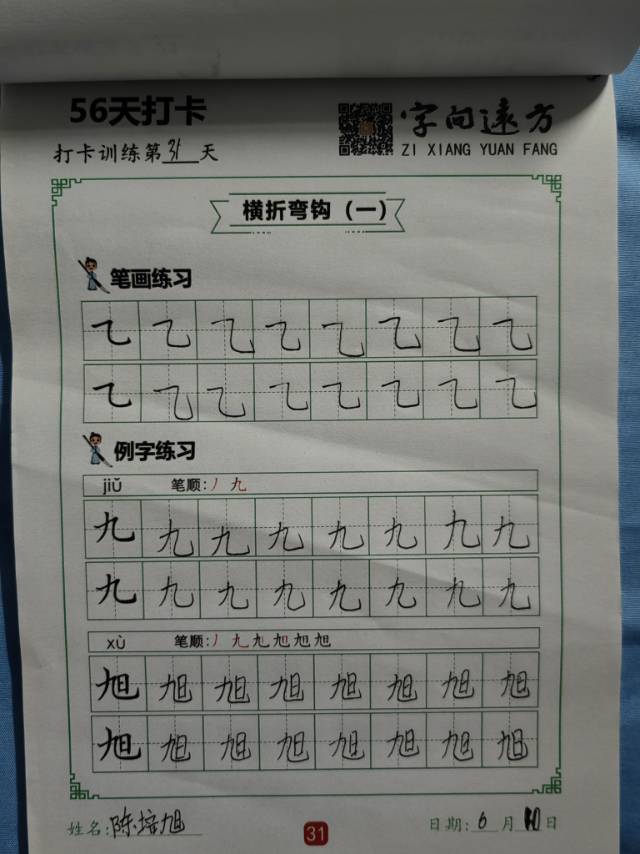 56天打卡
字向远方
ZI XIANG YUAN FANG
打卡训练第31天
横折弯钩（一）
笔画练习
㇈ ㇈ ㇈ ㇈ ㇈ ㇈ ㇈ ㇈
㇈ ㇈ ㇈ ㇈ ㇈ ㇈ ㇈ ㇈
例字练习
jiǔ 笔顺:丿 九
九 九 九 九 九 九 九 九
九 九 九 九 九 九 九 九
xù 笔顺:丿 九 九 旭 旭 旭
旭 旭 旭 旭 旭 旭 旭 旭
旭 旭 旭 旭 旭 旭 旭 旭
姓名:陈培旭
31
日期:6月10日